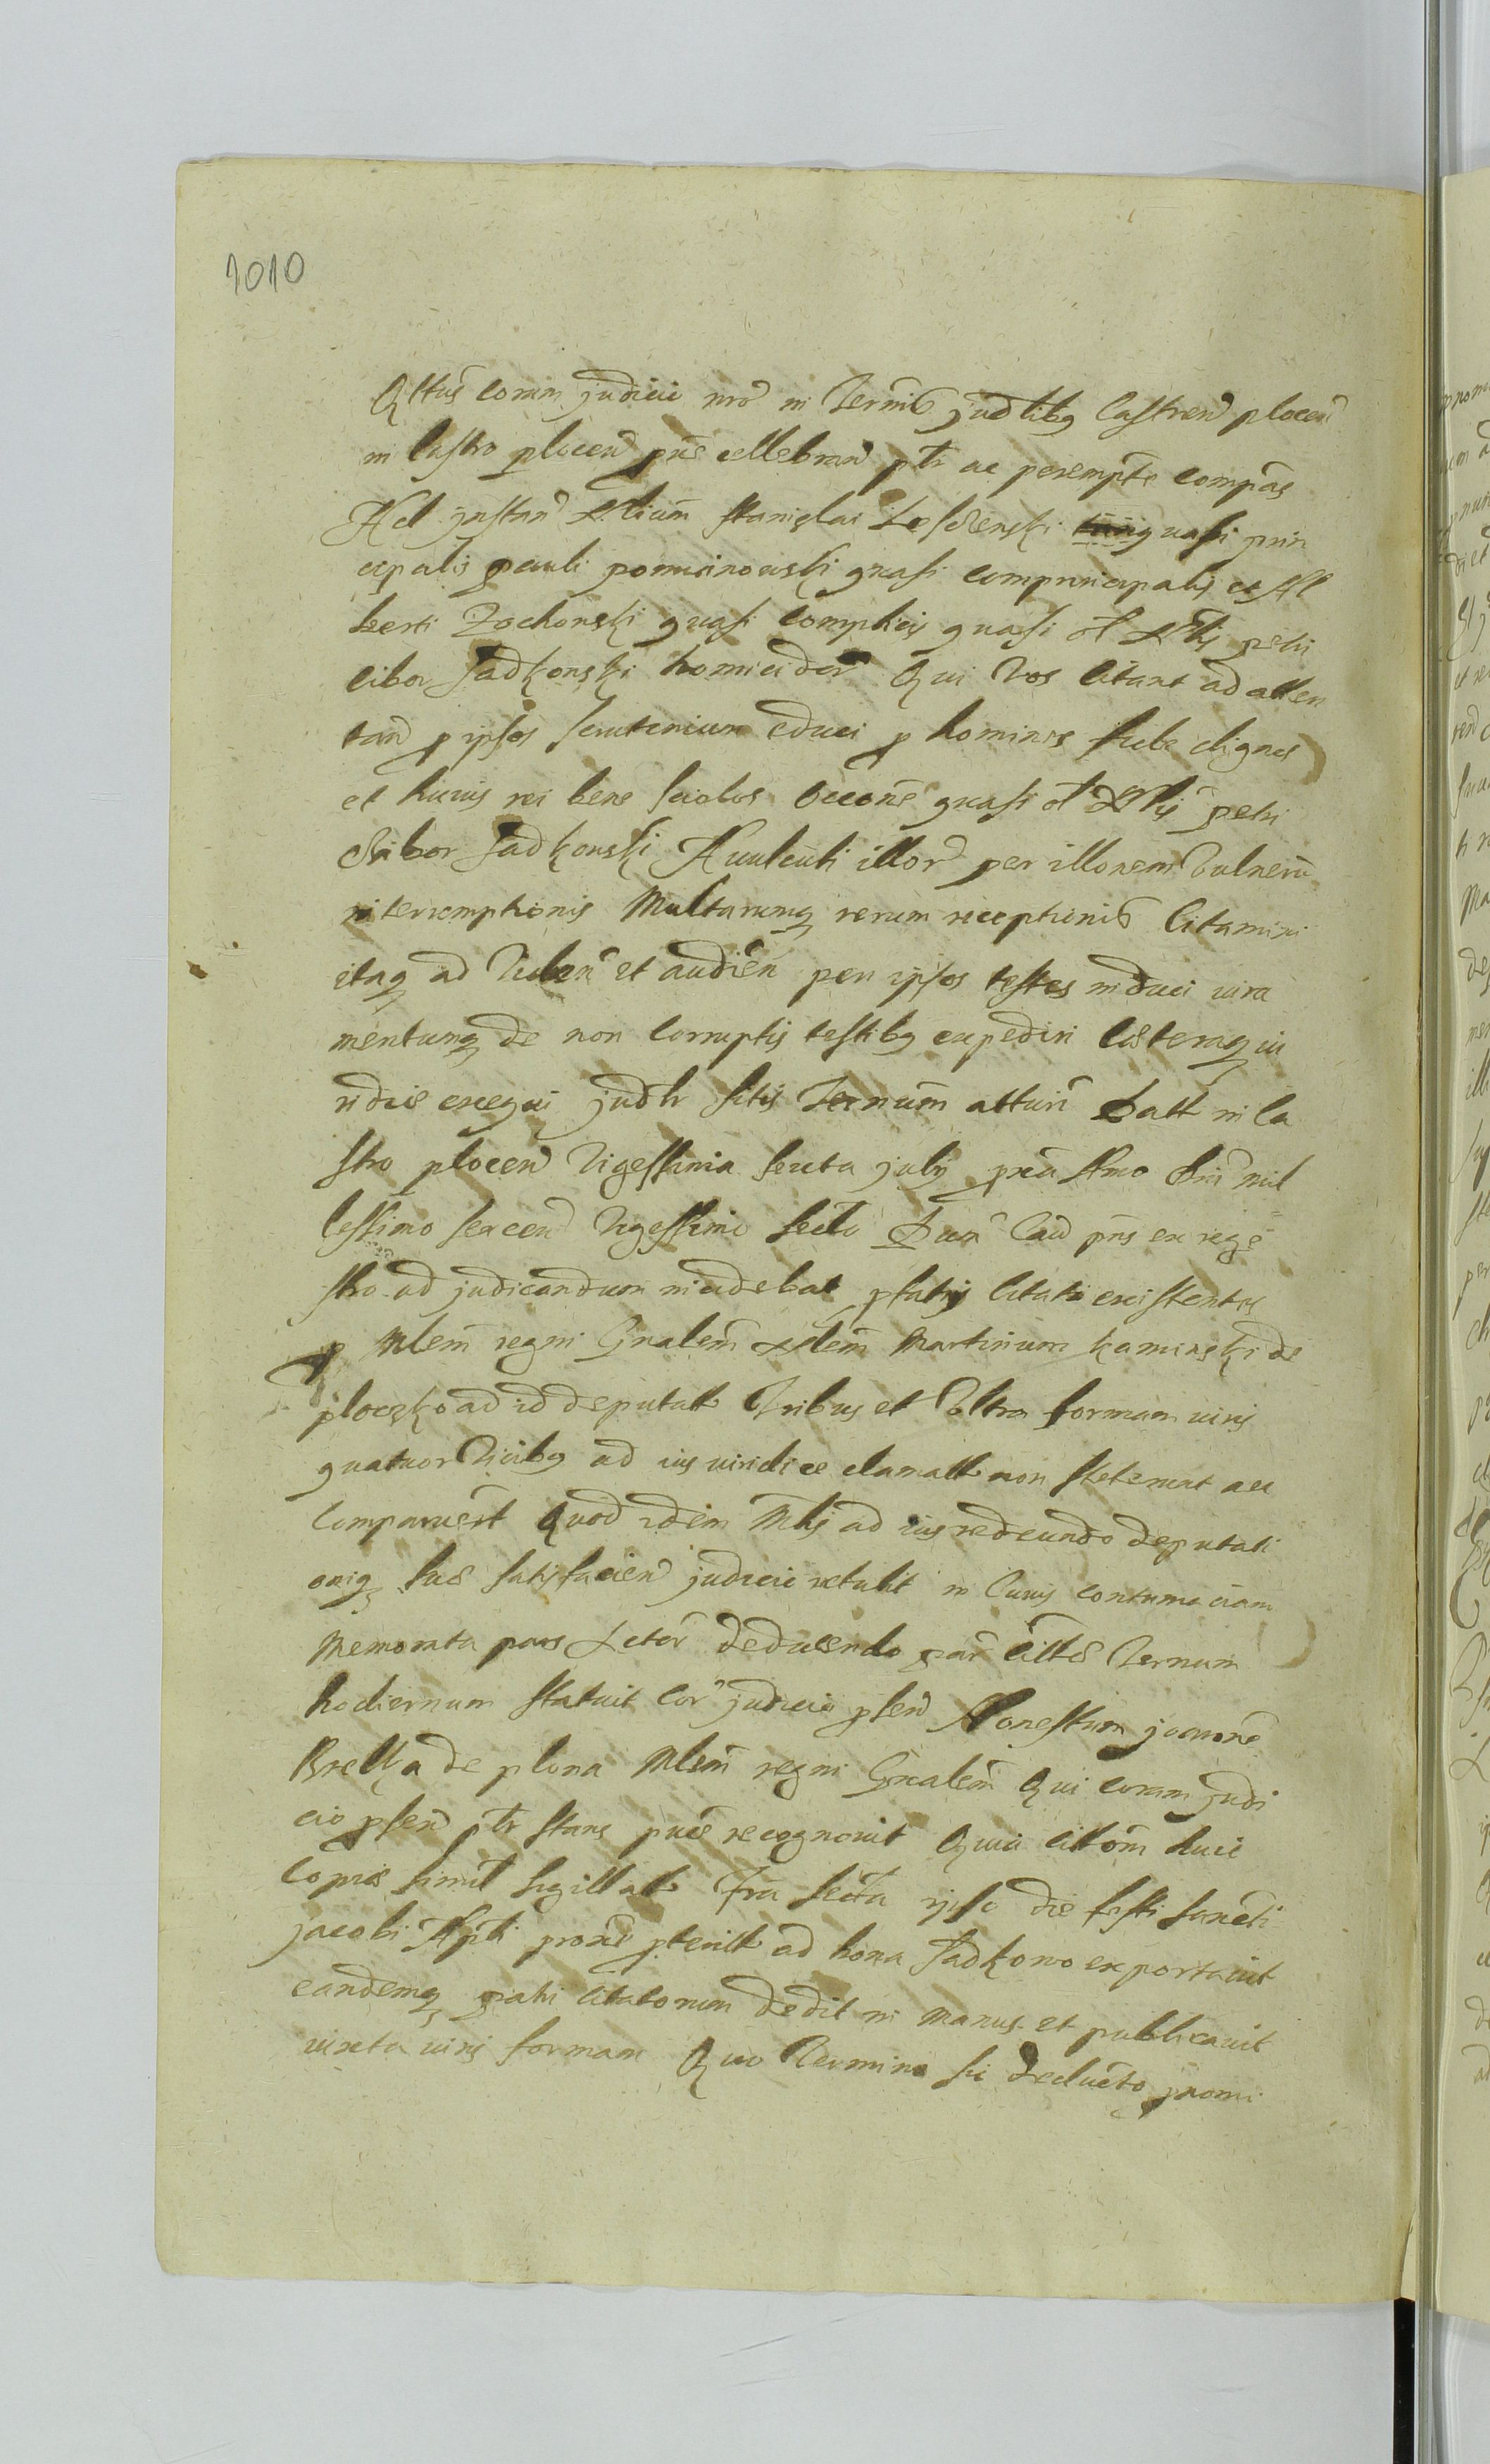 1010
Qttus coram judicio nro in Termis judlibq Castren plocen
in Castro plocen pns cellebran ptr ac perempte compas
Ad instan Nlium Stanislai quasi prin
cipalis pauli quasi comprincipalis et Al
berti Zochowski quasi complicis quasi ol Nlis petri
cibor Sadkowski homicidar Qui vos citant ad atten
tan p ipsos scrutinium educi p homines fide dignos
et huius rei bene sciolos occone quasi ol Nlis petri
Scibor Sadkowski illor per illorem vulnerū
interemptionis Multarumq rerum receptionis Citamini
itaq ad viden et audien per ipsos testes induci iura
mentumq de non corruptis testibq expediri caeteraq iu
ridice exequi judlr sitis Termum atturi Datt in Ca
stro plocen vigessima sexta july pria Anno Dni mil
lessimo sexcen vigessimo secdo Dum Cau pns ex rege
stro ad judicandum incidebat ptatis citatis existentes
p Mlem regni Gnalem Nlem Martinum kaminski de
ploczko ad id deputatt Tribus et Ultra formam iuris
quatuor vicibq ad ius iuridice clamatt non steterunt aec
Comparuerūt Quod idem Mlis ad ius redeundo deputati
oniq suae satisfacien judicio retulit in Cuius contumaciam
Memorata pars Actor deducendo par cittae Termum
hodiernum statuit cor judicio psen Honestum joannē
Brelka de plona Mlem regni Gnalem Qui coram judi
cio psen ptr stans puce recognovit Quia cittom huic
copiae simil sigillatt Fra secta ipso die festi sancti
jacobi Apli prone pteritt ad bona Sadkowo exportavit
eandemq patri citatorum dedit in manus et publicavit
iuxta iuris formam Quo Termino sic deducto jnomi